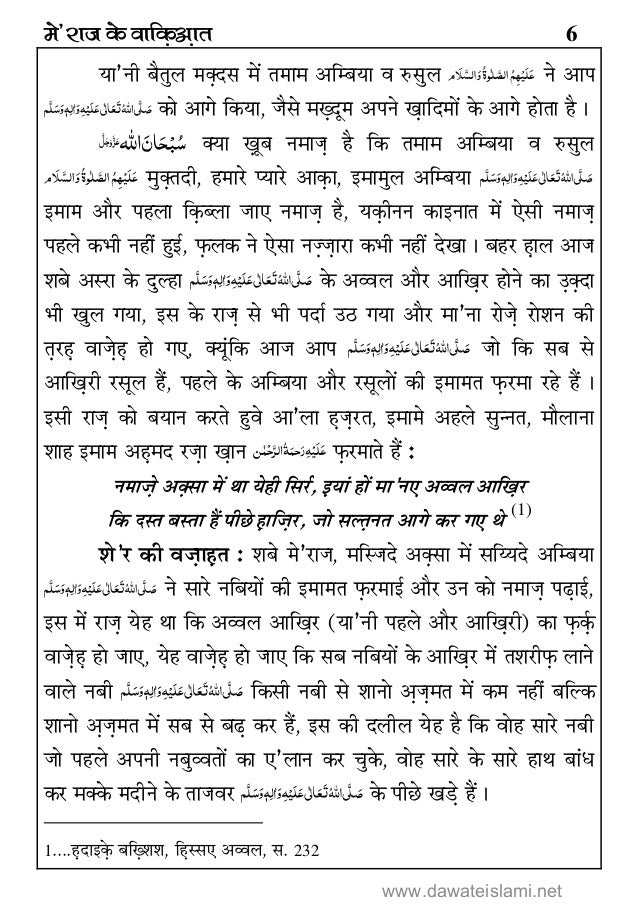 मे'राज के वाक़िआ़त 6
या'नी बैतुल मक़्दस में तमाम अम्बिया व रुसुल عَلَيْهِمُ الصَّلٰوةُ وَالسَّلَام ने आप
صَلَّى اللهُ تَعَالٰى عَلَيْهِ وَاٰلِهٖ وَسَلَّم को आगे किया, जैसे मख़्दूम अपने ख़ादिमों के आगे होता है ।
سُبْحَانَ اللّٰه عَزَّوَجَلَّ क्या ख़ूब नमाज़ है कि तमाम अम्बिया व रुसुल
عَلَيْهِمُ الصَّلٰوةُ وَالسَّلَام मुक़्तदी, हमारे प्यारे आक़ा, इमामुल अम्बिया صَلَّى اللهُ تَعَالٰى عَلَيْهِ وَاٰلِهٖ وَسَلَّم
इमाम और पहला क़िब्ला जाए नमाज़ है, यक़ीनन काइनात में ऐसी नमाज़
पहले कभी नहीं हुई, फ़लक ने ऐसा नज़्ज़ारा कभी नहीं देखा । बहर ह़ाल आज
शबे अस्रा के दुल्हा صَلَّى اللهُ تَعَالٰى عَلَيْهِ وَاٰلِهٖ وَسَلَّم के अव्वल और आख़िर होने का उ़क़्दा
भी खुल गया, इस के राज़ से भी पर्दा उठ गया और मा'ना रोज़े रोशन की
त़रह़ वाज़ेह़ हो गए, क्यूंकि आज आप صَلَّى اللهُ تَعَالٰى عَلَيْهِ وَاٰلِهٖ وَسَلَّم जो कि सब से
आख़िरी रसूल हैं, पहले के अम्बिया और रसूलों की इमामत फ़रमा रहे हैं ।
इसी राज़ को बयान करते हुवे आ'ला ह़ज़रत, इमामे अहले सुन्नत, मौलाना
शाह इमाम अह़मद रज़ा ख़ान عَلَيْهِ رَحْمَةُ الرَّحْمٰن फ़रमाते हैं :
नमाज़े अक़्सा में था येही सिर्र, इ़यां हों मा'नए अव्वल आख़िर
कि दस्त बस्ता हैं पीछे ह़ाज़िर, जो सल्त़नत आगे कर गए थे (1)
शे'र की वज़ाह़त : शबे मे'राज, मस्जिदे अक़्सा में सय्यिदे अम्बिया
صَلَّى اللهُ تَعَالٰى عَلَيْهِ وَاٰلِهٖ وَسَلَّم ने सारे नबियों की इमामत फ़रमाई और उन को नमाज़ पढ़ाई,
इस में राज़ येह था कि अव्वल आख़िर (या'नी पहले और आख़िरी) का फ़र्क़
वाज़ेह़ हो जाए, येह वाज़ेह़ हो जाए कि सब नबियों के आख़िर में तशरीफ़ लाने
वाले नबी صَلَّى اللهُ تَعَالٰى عَلَيْهِ وَاٰلِهٖ وَسَلَّم किसी नबी से शानो अ़ज़मत में कम नहीं बल्कि
शानो अ़ज़मत में सब से बढ़ कर हैं, इस की दलील येह है कि वोह सारे नबी
जो पहले अपनी नबुव्वतों का ए'लान कर चुके, वोह सारे के सारे हाथ बांध
कर मक्के मदीने के ताजवर صَلَّى اللهُ تَعَالٰى عَلَيْهِ وَاٰلِهٖ وَسَلَّم के पीछे खड़े हैं ।
1....ह़दाइक़े बख़्शिश, ह़िस्सए अव्वल, स. 232
www.dawateislami.net